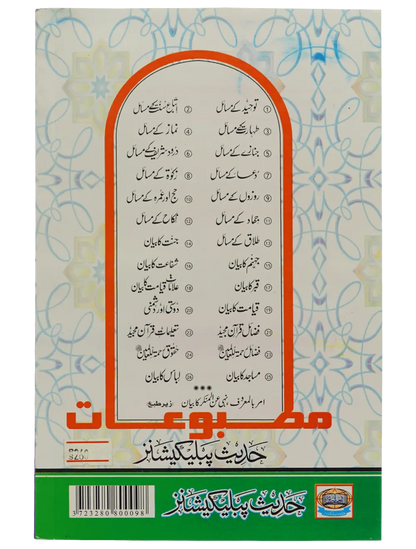 ① توحید کے مسائل ② اتباع سنت کے مسائل
③ طہارت کے مسائل ④ نماز کے مسائل
⑤ جنازے کے مسائل ⑥ درود شریف کے مسائل
⑦ دعا کے مسائل ⑧ زکوٰۃ کے مسائل
⑨ روزوں کے مسائل ⑩ حج اور عمرہ کے مسائل
⑪ جہاد کے مسائل ⑫ نکاح کے مسائل
⑬ طلاق کے مسائل ⑭ جنت کا بیان
⑮ جہنم کا بیان ⑯ شفاعت کا بیان
⑰ قبر کا بیان ⑱ علامات قیامت کا بیان
⑲ قیامت کا بیان ⑳ دوستی اور دشمنی
㉑ فضائل قرآن مجید ㉒ تعلیمات قرآن مجید
㉓ فضائل رحمۃ للعالمین ㉔ حقوق رحمۃ للعالمین
㉕ مساجد کا بیان ㉖ لباس کا بیان
امر بالمعروف نہی عن المنکر کا بیان زیر طبع
مطبوعات
حدیث پبلیکیشنز
حدیث پبلیکیشنز
3723280800098